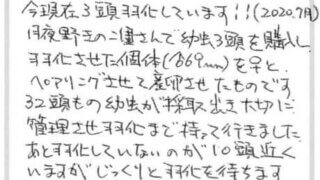 今現在3頭羽化しています!!(2020.7月)
月夜野きのこ園さんで幼虫3頭を購入し
羽化させた個体(♂69mm)を♀と
ペアリングさせて産卵させたものです
32頭もの幼虫が採取出き大切に
管理させ羽化まで持って行きました
あと羽化していないのが10頭近く
いますがじっくりと羽化を待ちます